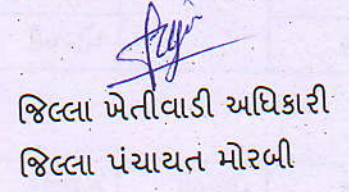 જિલ્લા ખેતીવાડી અધિકારી
જિલ્લા પંચાયત મોરબી